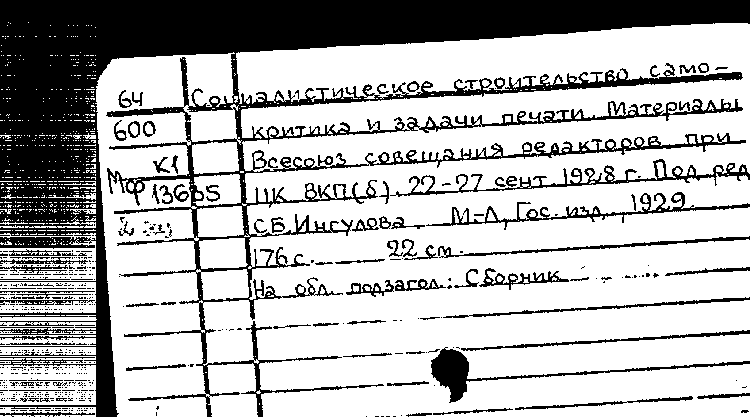 64 Социалистическое строительство, само-
600 критика и задачи печати. Материалы
К1 Всесоюз совещания редакторов при
Мф 13605 ЦК ВКП(б). 22-27 сент. 1928 г. Под ред
С.Б.Ингулова. М-Л, Гос. изд., 1929.
176 с. 22 см.
На обл. подзагол.: Сборник